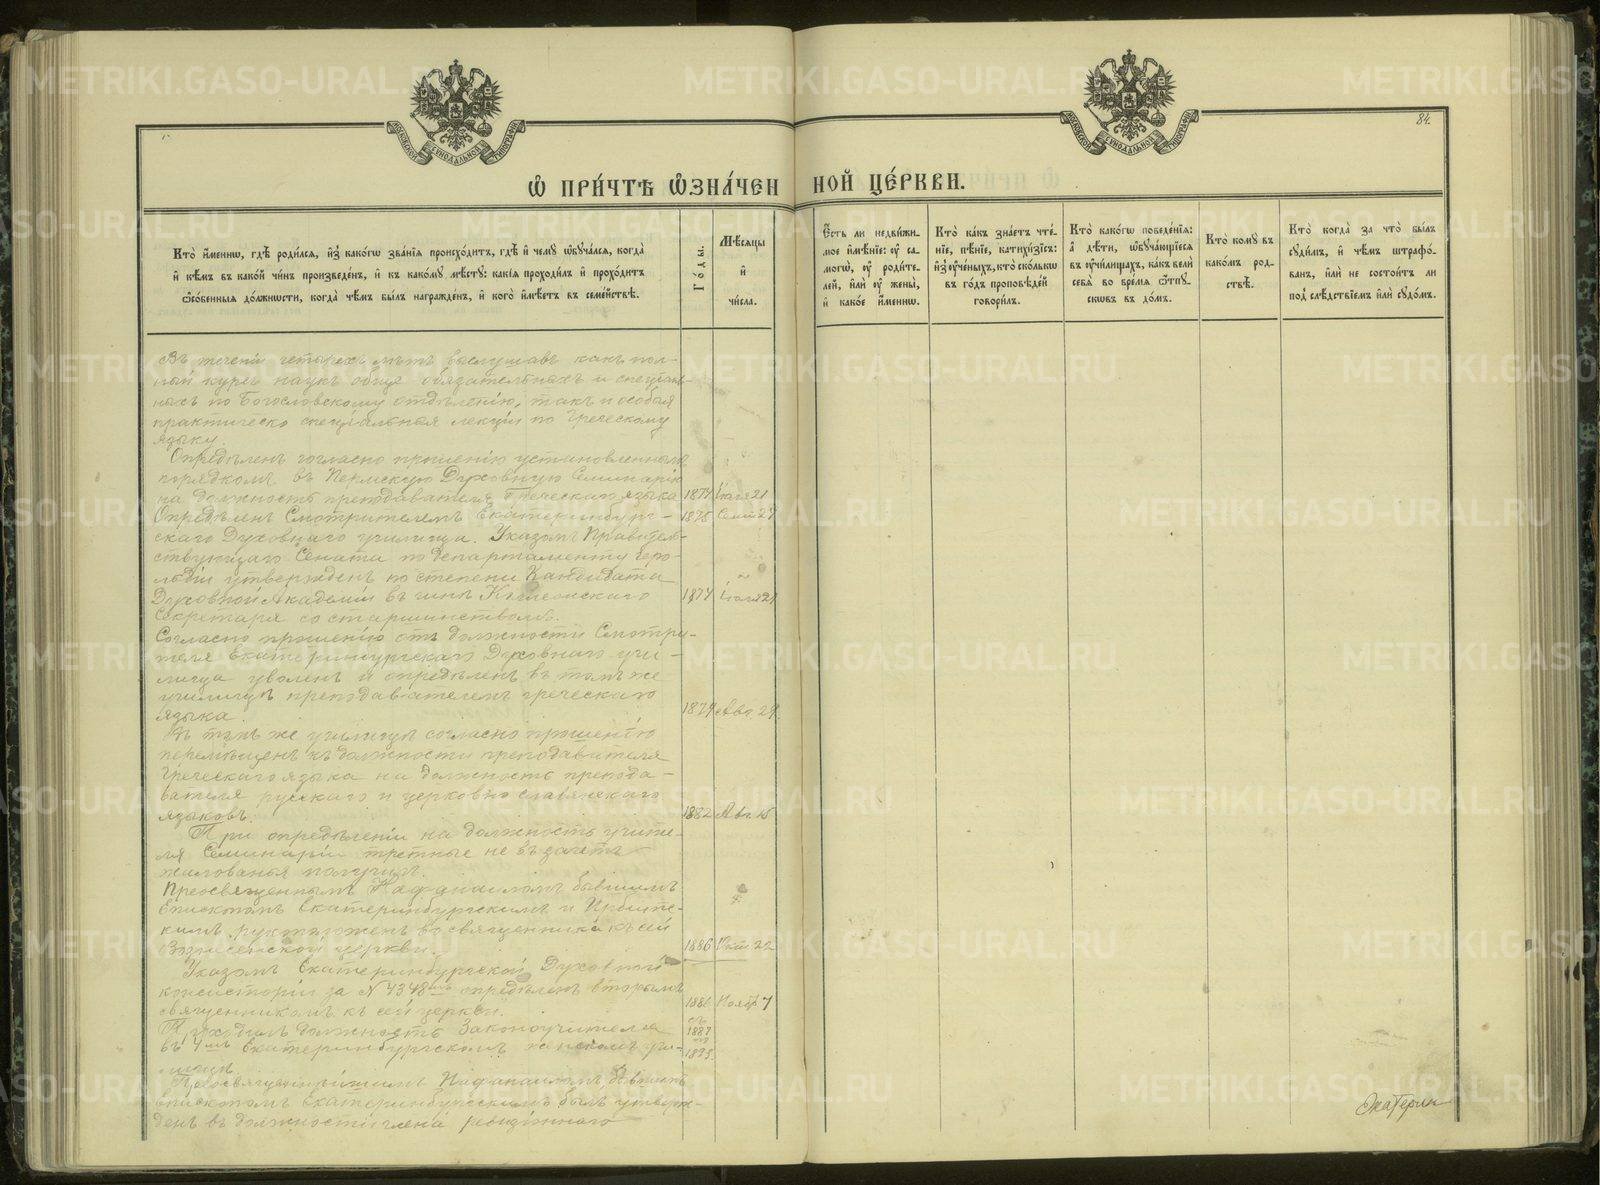 84.
Ѡ ПРИ́ЧТѢ ѠЗНА́ЧЕННОЙ ЦЕ́РКВИ.
Кто̀ и́менно, гдѣ̀ роди́лся, и́зъ како́гѡ зва́нїя происхо́дитъ, гдѣ̀ и҆ чему̀ ѡ҆бꙋча́лся, когда̀
и҆ кѣ́мъ въ како́й чи́нъ произведе́нъ, и҆ къ како́мꙋ мѣ́стꙋ: какі̑я проходи́лъ и҆ прохо́дитъ
ѻ҆со́бенныя до́лжности, когда̀ чѣ́мъ бы́лъ награжде́нъ, и҆ кого̀ имѣ́етъ въ семе́йствѣ.
Го́ды.
Мѣ́сяцы
и҆
чи́сла.
Є҆́сть ли недви́жи-
мое имѣ́нїе: ᲂу҆ са-
могѡ̀, ᲂу҆ роди́те-
лей, и҆лѝ ᲂу҆ жены̀,
и҆ како́е и́менно.
Кто̀ ка́къ зна́етъ чте́-
нїе, пѣ́нїе, катихи́зїсъ:
и҆зъ ᲂу҆че́ныхъ, кто̀ ско́лькѡ
въ го́дъ про́повѣдей
говори́лъ.
Кто̀ како́гѡ поведе́нїя:
а҆ дѣ́ти, ѡ҆бꙋча́ющїеся
въ ᲂу҆чи́лищахъ, ка́къ велѝ
себя̀ во вре́мя ѿпꙋ-
скѡвъ въ до́мъ.
Кто̀ комꙋ̀ въ
како́мъ род-
ствѣ̀.
Кто̀ когда̀ за что̀ бы́лъ
сꙋди́мъ, и҆ чѣ́мъ штрафо́-
ванъ, и҆лѝ не состои́тъ ли
под̾ слѣ́дствїемъ и҆лѝ сꙋдо́мъ.
Въ теченіи четырехъ лѣтъ выслушавъ какъ пол-
ный курсъ наукъ обще обязательныхъ и спеціаль-
ныхъ по Богословскому отдѣленію, такъ и особыя
практическо спеціальныя лекціи по Греческому
языку.
Опредѣленъ согласно прошенію установленнымъ
порядкомъ въ Пермскую Духовную Семинарію
на должность преподавателя Греческаго языка 1874 Іюля 21
Опредѣленъ Смотрителемъ Екатеринбург- 1875 Сент 27
скаго Духовнаго училища. Указомъ Правитель-
ствующаго Сената по департаменту Геро-
льдіи утвержденъ по степени Кандидата
Духовной Академіи въ чинѣ Коллежскаго 1874 Іюля 21
Секретаря со старшинствомъ.
Согласно прошенію отъ должности Смотри-
теля Екатеринбургскаго Духовнаго учи-
лища уволенъ и опредѣленъ въ томъ же
училищѣ преподавателемъ греческаго
языка. 1879 Авг. 29
Въ томъ же училищѣ согласно прошенію
перемѣщенъ къ должности преподавателя
Греческаго языка на должность препода-
вателя русскаго и церковно славянскаго
языковъ. 1882 Авг. 15
При опредѣленіи на должность учите-
ля Семинаріи третные не въ зачетъ
жалованья получилъ.
Преосвященнымъ Нафанаиломъ бывшимъ
Епископомъ Екатеринбургскимъ и Ирбитс-
кимъ рукположенъ во священника къ сей
Вознесенской церкви. 1886 Окт. 22
Указомъ Екатеринбургской Духовной
консисторіи за № 4348 опредѣленъ вторымъ
священникомъ къ сей церкви. 1886 Нояб 7
Проходилъ должность Законоучителя съ 1887
въ 4мъ Екатеринбургскомъ женскомъ учи- по 1895.
лищѣ
Преосвященнѣйшимъ Нафанаиломъ, бывшимъ
епископомъ Екатеринбургскимъ былъ утверж-
денъ въ должности члена ревизіоннаго
Екатерин